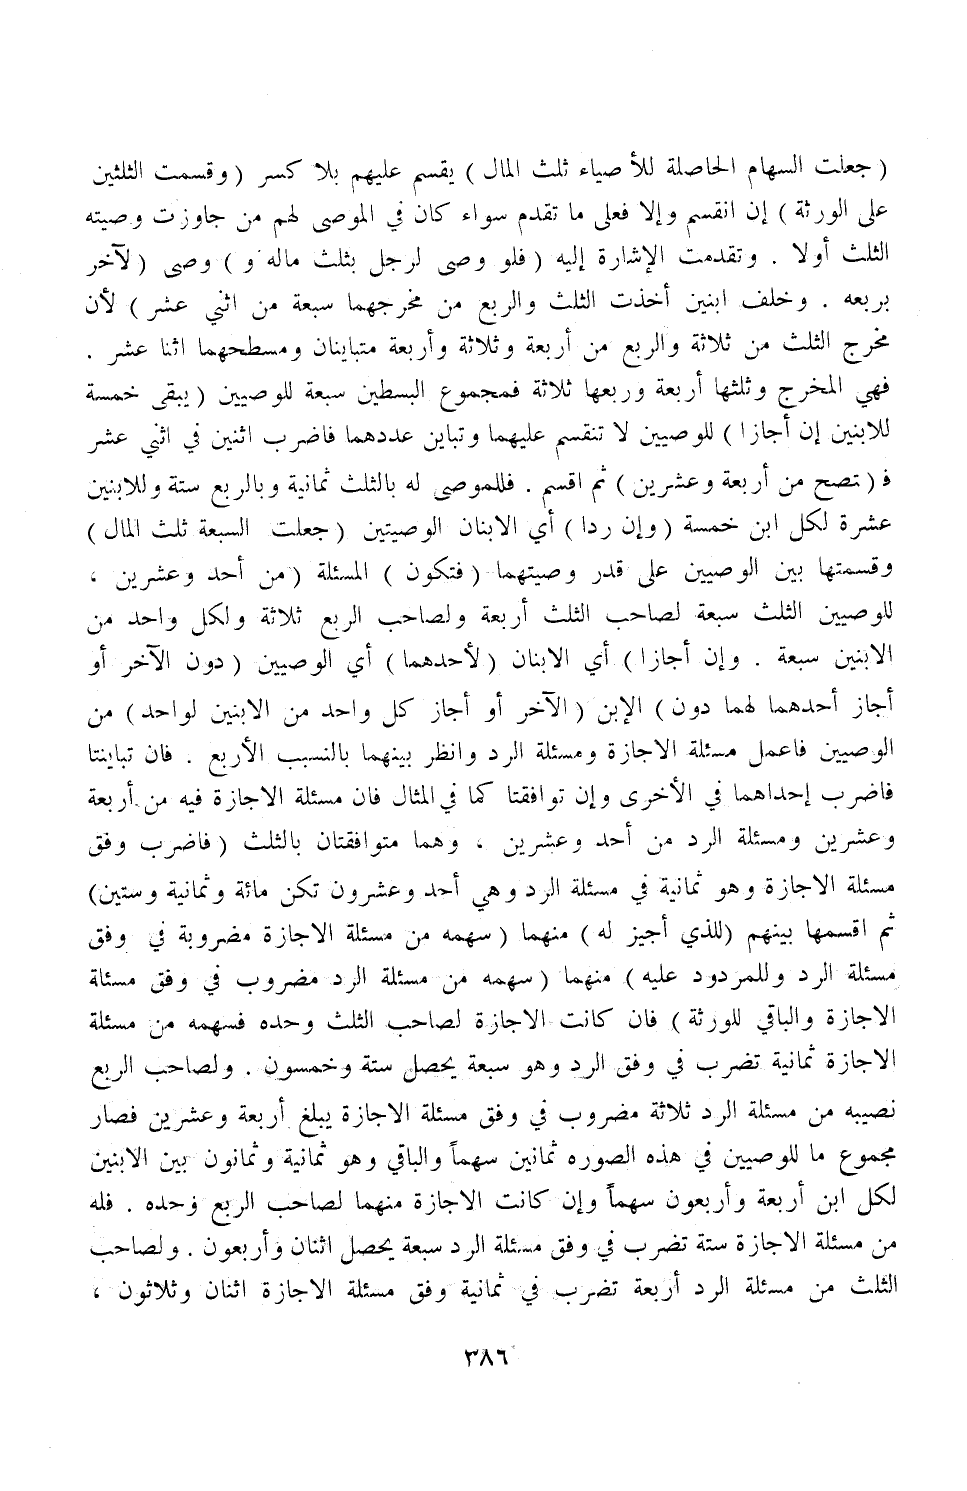 ( جعلت السهام الحاصلة للأصياء ثلث المال ) يقسم عليهم بلا كسر ( وقسمت الثلثين
على الورثة ) إن انقسم وإلا فعلى ما تقدم سواء كان في الموصى لهم من جاوزت وصيته
الثلث أولا . وتقدمت الإشارة إليه ( فلو وصى لرجل بثلث ماله و ) وصى ( لآخر
بربعه . وخلف ابنين أخذت الثلث والربع من مخرجهما سبعة من اثني عشر ) لأن
مخرج الثلث من ثلاثة والربع من أربعة وثلاثة وأربعة متباينان ومسطحهما اثنا عشر .
فهي المخرج وثلثها أربعة وربعها ثلاثة فمجموع البسطين سبعة للوصيين ( يبقى خمسة
للابنين إن أجازا ) للوصيين لا تنقسم عليهما وتباين عددهما فاضرب اثنين في اثني عشر
فـ ( تصح من أربعة وعشرين ) ثم اقسم . فللموصى له بالثلث ثمانية وبالربع ستة وللابنين
عشرة لكل ابن خمسة ( وإن ردا ) أي الابنان الوصيتين ( جعلت السبعة ثلث المال )
وقسمتها بين الوصيين على قدر وصيتهما ( فتكون ) المسئلة ( من أحد وعشرين ،
للوصيين الثلث سبعة لصاحب الثلث أربعة ولصاحب الربع ثلاثة ولكل واحد من
الابنين سبعة . وإن أجازا ) أي الابنان ( لأحدهما ) أي الوصيين ( دون الآخر أو
أجاز أحدهما لهما دون ) الإبن ( الآخر أو أجاز كل واحد من الابنين لواحد ) من
الوصيين فاعمل مسئلة الاجازة ومسئلة الرد وانظر بينهما بالنسب الأربع . فان تباينتا
فاضرب إحداهما في الأخرى وإن توافقتا كما في المثال فان مسئلة الاجازة فيه من أربعة
وعشرين ومسئلة الرد من أحد وعشرين ، وهما متوافقتان بالثلث ( فاضرب وفق
مسئلة الاجازة وهو ثمانية في مسئلة الرد وهي أحد وعشرون تكن مائة وثمانية وستين)
ثم اقسمها بينهم (للذي أجيز له ) منهما ( سهمه من مسئلة الاجازة مضروبة في وفق
مسئلة الرد وللمردود عليه ) منهما ( سهمه من مسئلة الرد مضروب في وفق مسئلة
الاجازة والباقي للورثة ) فان كانت الاجازة لصاحب الثلث وحده فسهمه من مسئلة
الاجازة ثمانية تضرب في وفق الرد وهو سبعة يحصل ستة وخمسون . ولصاحب الربع
نصيبه من مسئلة الرد ثلاثة مضروب في وفق مسئلة الاجازة يبلغ أربعة وعشرين فصار
مجموع ما للوصيين في هذه الصوره ثمانين سهماً والباقي وهو ثمانية وثمانون بين الابنين
لكل ابن أربعة وأربعون سهماً وإن كانت الاجازة منهما لصاحب الربع وحده . فله
من مسئلة الاجازة ستة تضرب في وفق مسئلة الرد سبعة يحصل اثنان وأربعون . ولصاحب
الثلث من مسئلة الرد أربعة تضرب في ثمانية وفق مسئلة الاجازة اثنان وثلاثون ،
٣٨٦